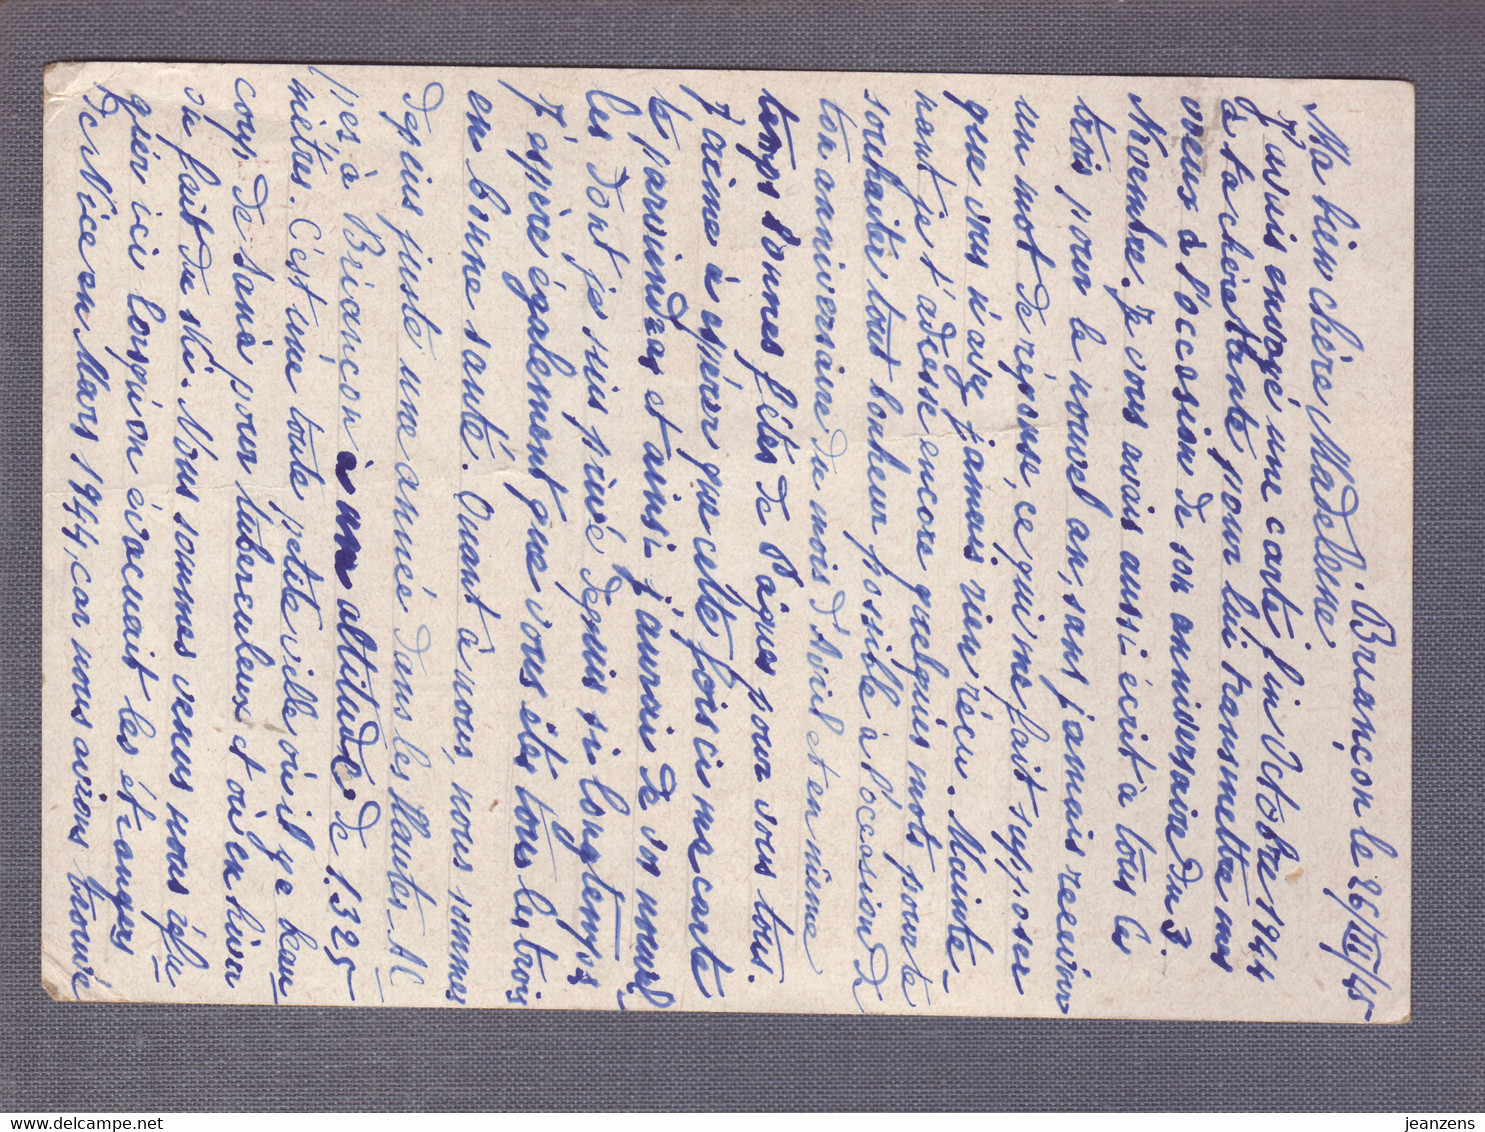 Briançon le 26/III/45
Ma bien chère Madeleine.
J'avais envoyé une carte fin Octobre 1944
à ta chère tante pour lui transmettre mes
vœux à l'occasion de son anniversaire du 3.
Novembre. Je vous avais aussi écrit à tous les
trois pour le nouvel an, sans jamais recevoir
un mot de réponse, ce qui me fait supposer
que vous n'avez jamais rien reçu. Mainte-
nant je t'adresse encore quelques mots pour te
souhaiter tout bonheur possible à l'occasion de
ton anniversaire du mois d'Avril et en même
temps bonnes fêtes de Pâques pour vous tous.
J'aime à espérer que cette fois ci ma carte
te parviendra et ainsi j'aurai de vos nouvel-
les dont je suis privé depuis si longtemps
J'espère également que vous êtes tous les trois
en bonne santé. Quant à nous, nous sommes
depuis juste une année dans les Hautes-Al-
pes à Briançon à une altitude de 1.325
mètres. C'est une toute petite ville où il y a beau-
coup de Sana pour tuberculeux et où en hiver
on fait du ski. Nous sommes venus nous réfu-
gier ici lorsqu'on évacuait les étrangers
de Nice en Mars 1944, car nous avions trouvé
jeanzens